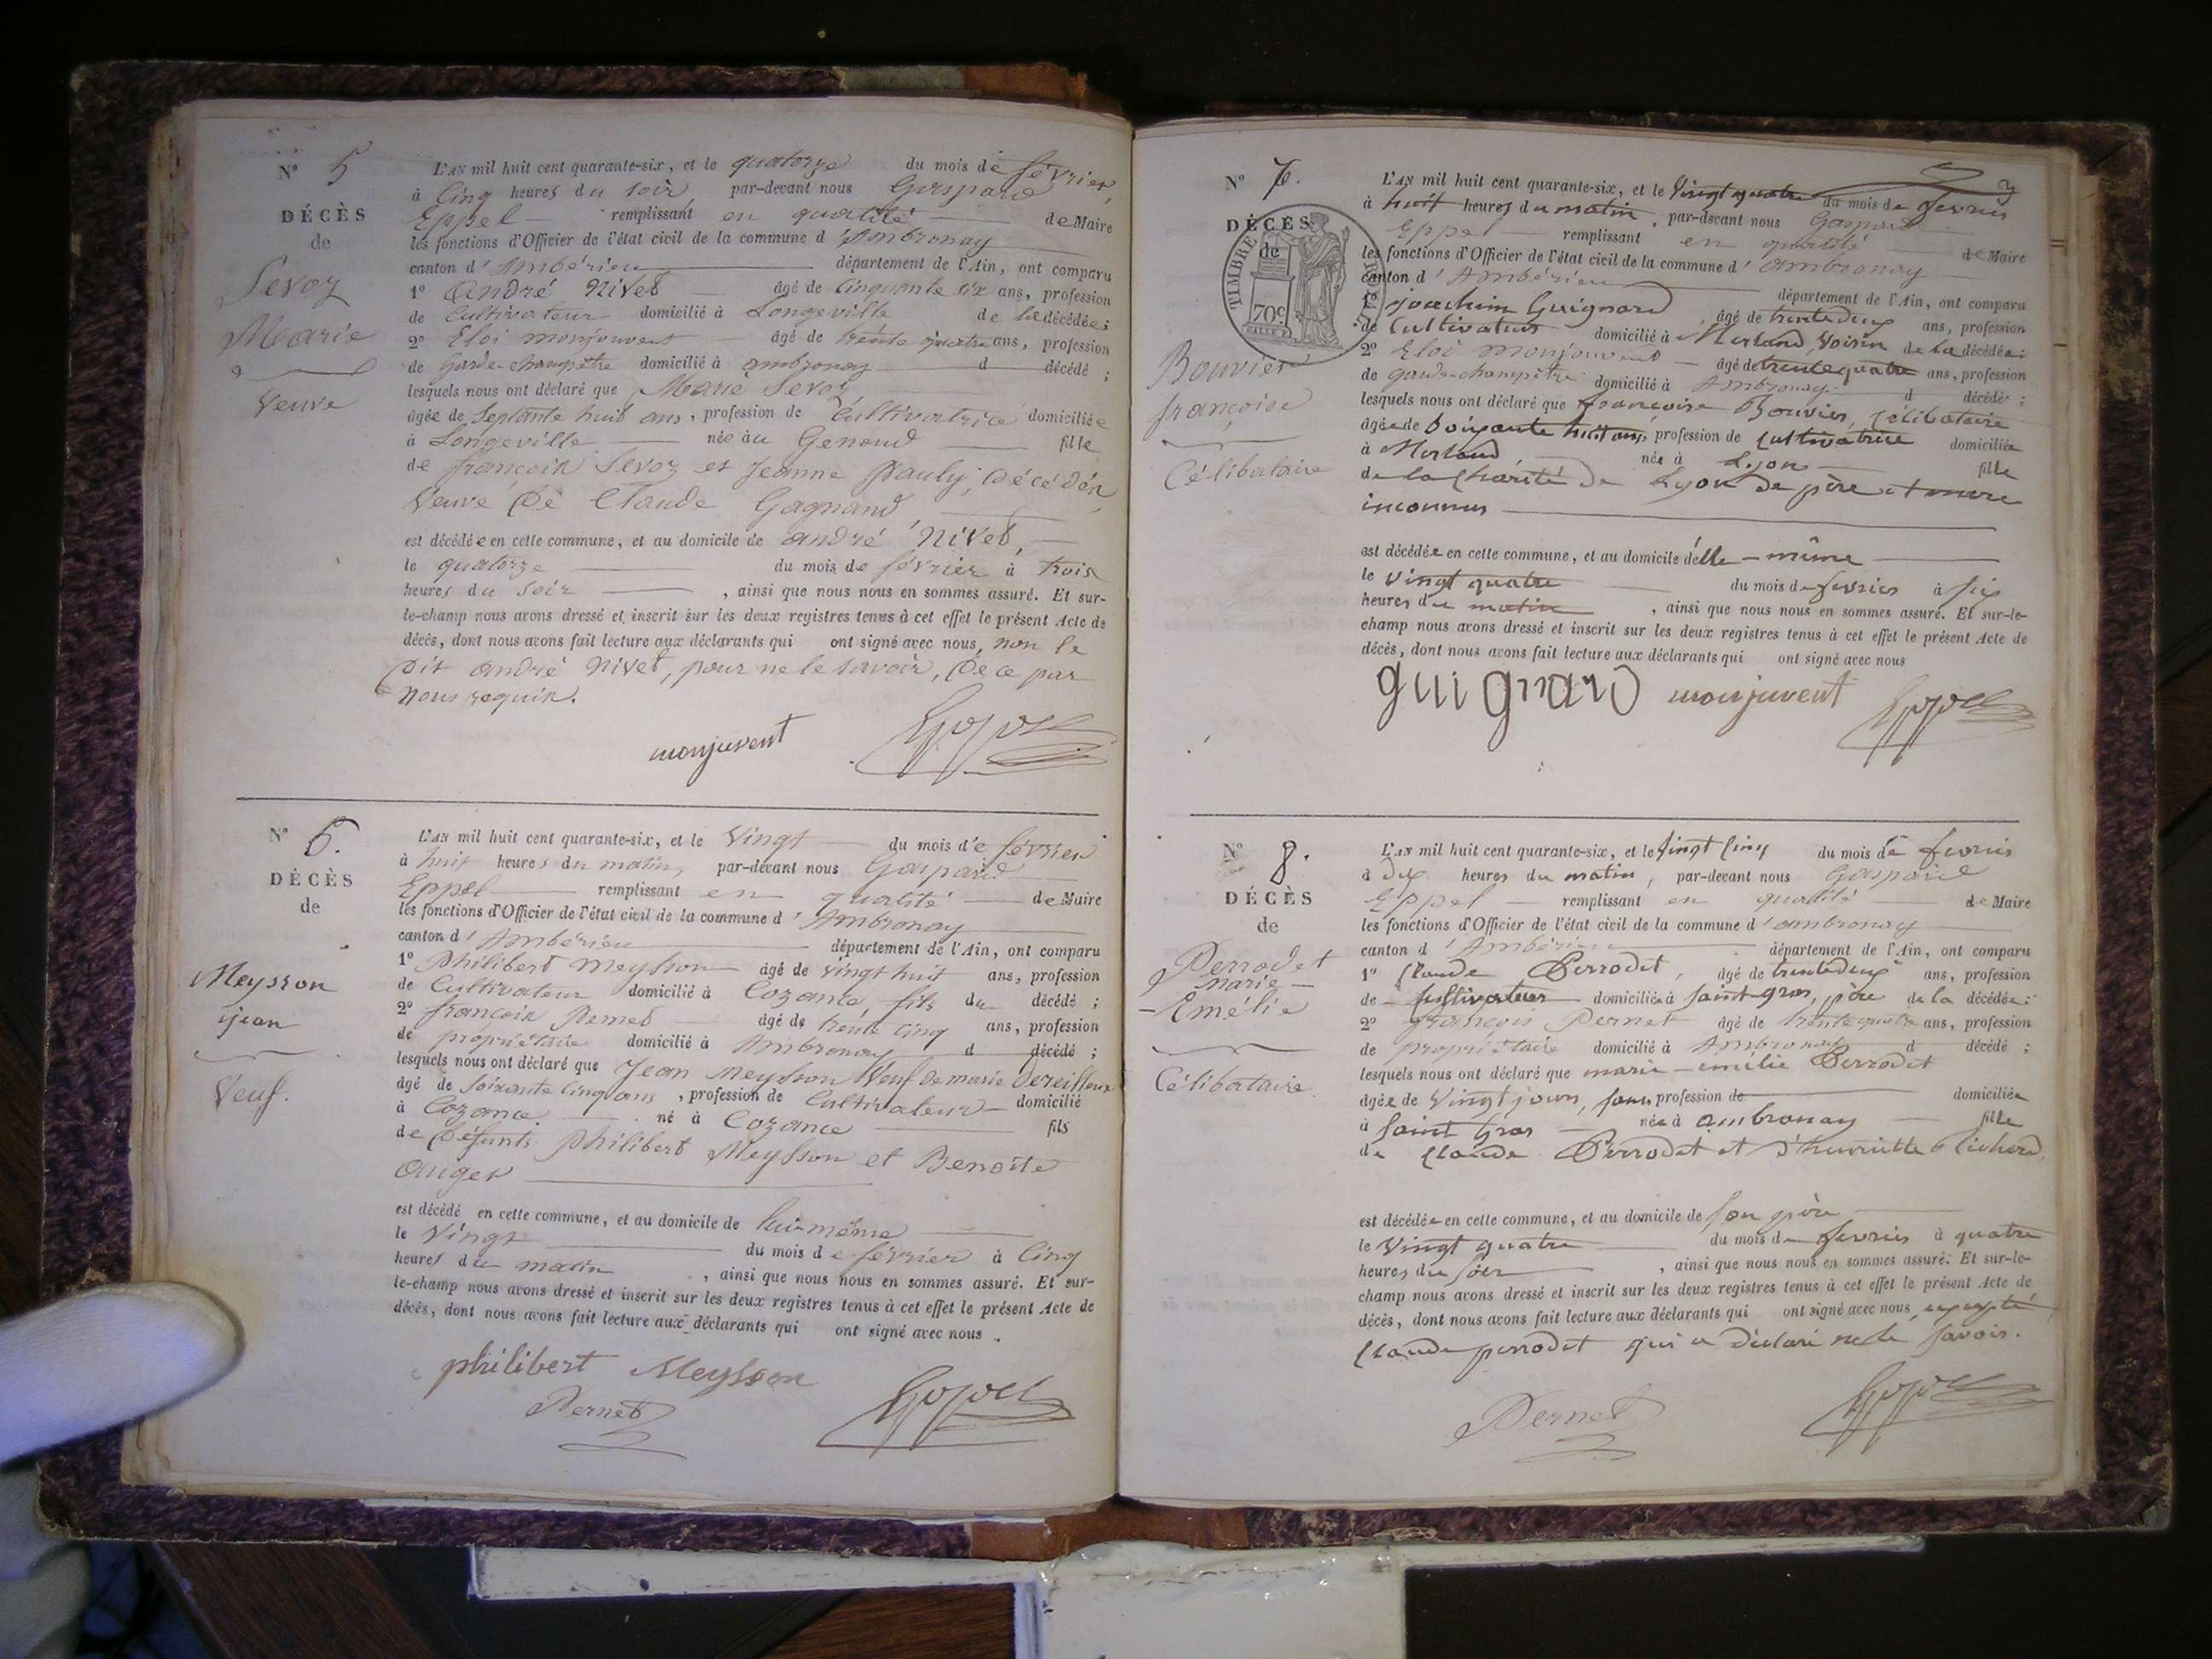 N° 5
DÉCÈS
de
Sevoz
Marie
Veuve
L'AN mil huit cent quarante-six, et le quatorze du mois de février,
à cinq heures du soir par-devant nous Gaspard
Eppel remplissant en qualité de Maire
les fonctions d'Officier de l'état civil de la commune d'Ambronay
canton d'Ambérieu département de l'Ain, ont comparu
1° André Nivet âgé de cinquante six ans, profession
de Cultivateur domicilié à Longeville de la décédée;
2° Eloi monjouvent âgé de trente quatre ans, profession
de garde-champêtre domicilié à ambronay d décédé;
lesquels nous ont déclaré que Marie Sevoz
âgée de septante huit ans, profession de Cultivatrice domiciliée
à Longeville née au Genoud fille
de françois Sevoz et Jeanne Pauly, décédés,
Veuve de Claude Gagnand,
est décédée en cette commune, et au domicile de andré Nivet,
le quatorze du mois de février à trois
heures du soir, ainsi que nous nous en sommes assuré. Et sur-
le-champ nous avons dressé et inscrit sur les deux registres tenus à cet effet le présent Acte de
décès, dont nous avons fait lecture aux déclarants qui ont signé avec nous, non le
dit andré Nivet, pour ne le savoir, de ce par
nous requis.
monjuvent Eppel
N° 6.
DÉCÈS
de
Meysson
jean
Veuf.
L'AN mil huit cent quarante-six, et le vingt du mois de février
à huit heures du matin, par-devant nous Gaspard
Eppel remplissant en qualité de Maire
les fonctions d'Officier de l'état civil de la commune d'Ambronay
canton d'Ambérieu département de l'Ain, ont comparu
1° Philibert Meysson âgé de vingt huit ans, profession
de Cultivateur domicilié à Cozance fils du décédé;
2° françois Pernet âgé de trente cinq ans, profession
de propriétaire domicilié à Ambronay d décédé;
lesquels nous ont déclaré que Jean Meysson Veuf de marie
âgé de soixante cinq ans, profession de Cultivateur domicilié
à Cozance né à Cozance fils
de défunts Philibert Meysson et Benoîte
Auger
est décédé en cette commune, et au domicile de lui-même
le vingt du mois de février à cinq
heures du matin, ainsi que nous nous en sommes assuré. Et sur-
le-champ nous avons dressé et inscrit sur les deux registres tenus à cet effet le présent Acte de
décès, dont nous avons fait lecture aux déclarants qui ont signé avec nous.
philibert Meysson
Pernet Eppel
3
N° 7.
DÉCÈS
de
TIMBRE
70c
Bouvier
françoise
Célibataire
L'AN mil huit cent quarante-six, et le vingt quatre du mois de fevrier
à huit heures du matin, par-devant nous Gaspard
Eppel remplissant en qualité de Maire
les fonctions d'Officier de l'état civil de la commune d'ambronay
canton d'Ambérieu département de l'Ain, ont comparu
1° joachim Guignard, âgé de trente deux ans, profession
de Cultivateur domicilié à Merland, voisin de la décédée;
2° Eloi monjouvent âgé de trente quatre ans, profession
de garde-champêtre domicilié à Ambronay d décédé;
lesquels nous ont déclaré que françoise Bouvier, célibataire
âgée de soixante huit ans, profession de cultivatrice domiciliée
à Merland née à Lyon fille
de la charité de Lyon de père et mere
inconnus
est décédée en cette commune, et au domicile d'elle-même
le vingt quatre du mois de fevrier à six
heures du matin, ainsi que nous nous en sommes assuré. Et sur-le-
champ nous avons dressé et inscrit sur les deux registres tenus à cet effet le présent Acte de
décès, dont nous avons fait lecture aux déclarants qui ont signé avec nous
guignard monjuvent Eppel
N° 8.
DÉCÈS
de
Perrodet
marie-
Emélie
Célibataire
L'AN mil huit cent quarante-six, et le vingt cinq du mois de fevrier
à dix heures du matin, par-devant nous Gaspard
Eppel remplissant en qualité de Maire
les fonctions d'Officier de l'état civil de la commune d'ambronay
canton d'Ambérieu département de l'Ain, ont comparu
1° Claude Perrodet, âgé de trente deux ans, profession
de cultivateur domicilié à saint gras, père de la décédée;
2° françois Pernet âgé de trente quatre ans, profession
de propriétaire domicilié à Ambronay d décédé;
lesquels nous ont déclaré que marie-emélie Perrodet
âgée de vingt jours, sans profession de domiciliée
à saint Gras née à ambronay fille
de Claude Perrodet et d'henriette
est décédée en cette commune, et au domicile de son père
le vingt quatre du mois de fevrier à quatre
heures du soir, ainsi que nous nous en sommes assuré. Et sur-le-
champ nous avons dressé et inscrit sur les deux registres tenus à cet effet le présent Acte de
décès, dont nous avons fait lecture aux déclarants qui ont signé avec nous, excepté
Claude perrodet qui a déclaré ne le savoir.
Pernet Eppel